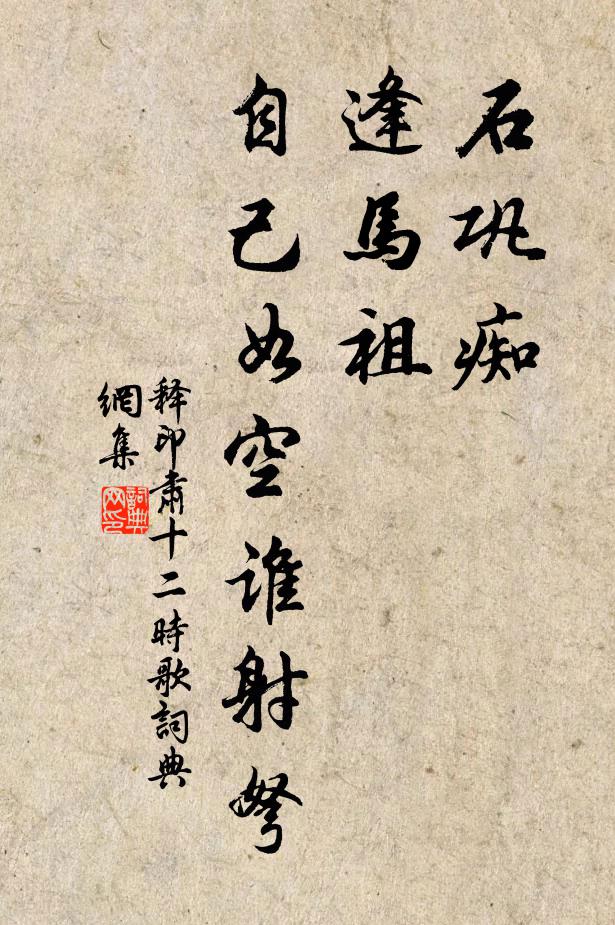 石巩痴
逢馬祖
自己如空谁射弩
释印肃十二時歌詞典
網集
詞典网印